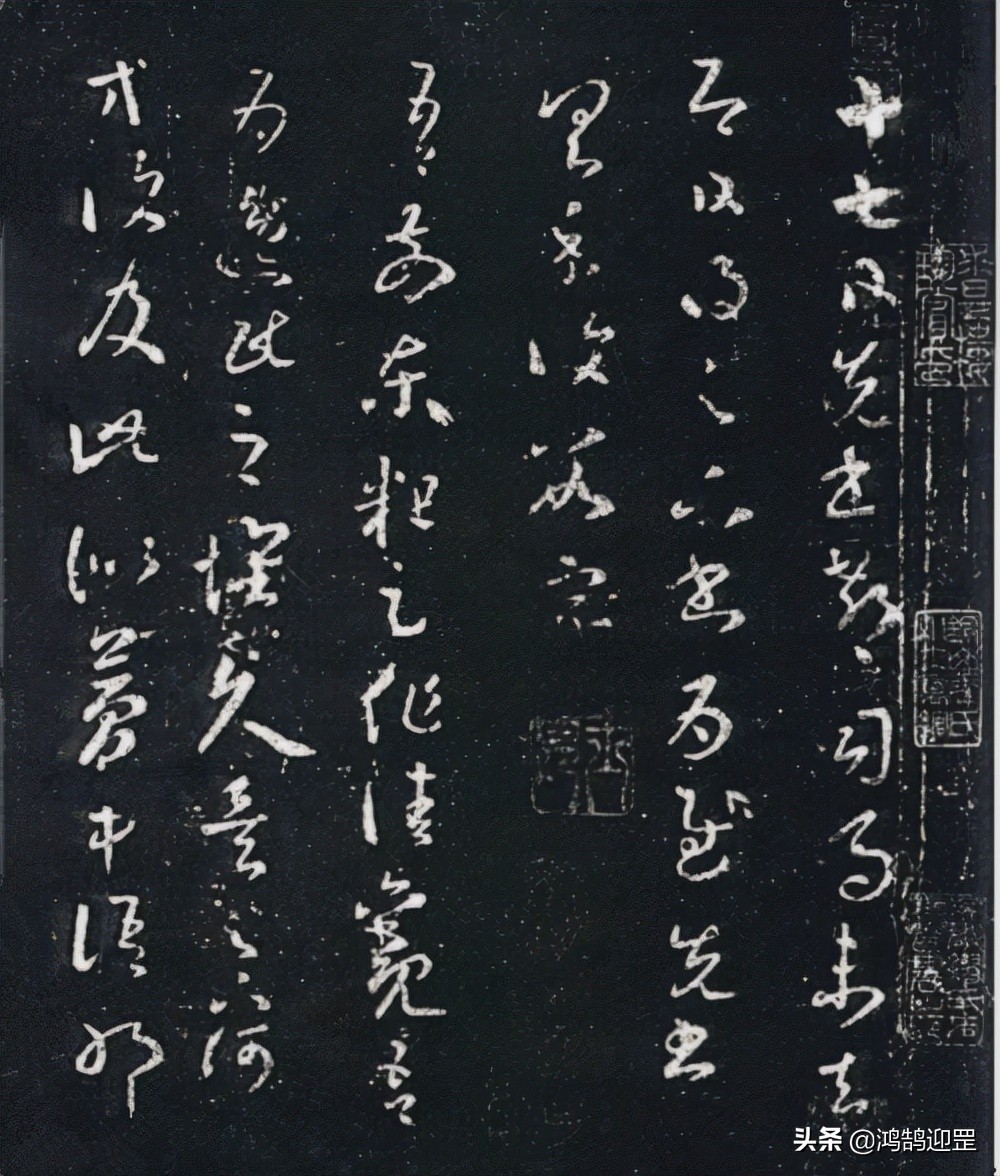 十七日先書郗司馬未去
即日得足下書為慰先書
以具示復數字
吾前東粗足作佳觀吾
為逸民之懷久矣足下何
等復及此似夢中語耶
头条 @鸿鹄迎罡